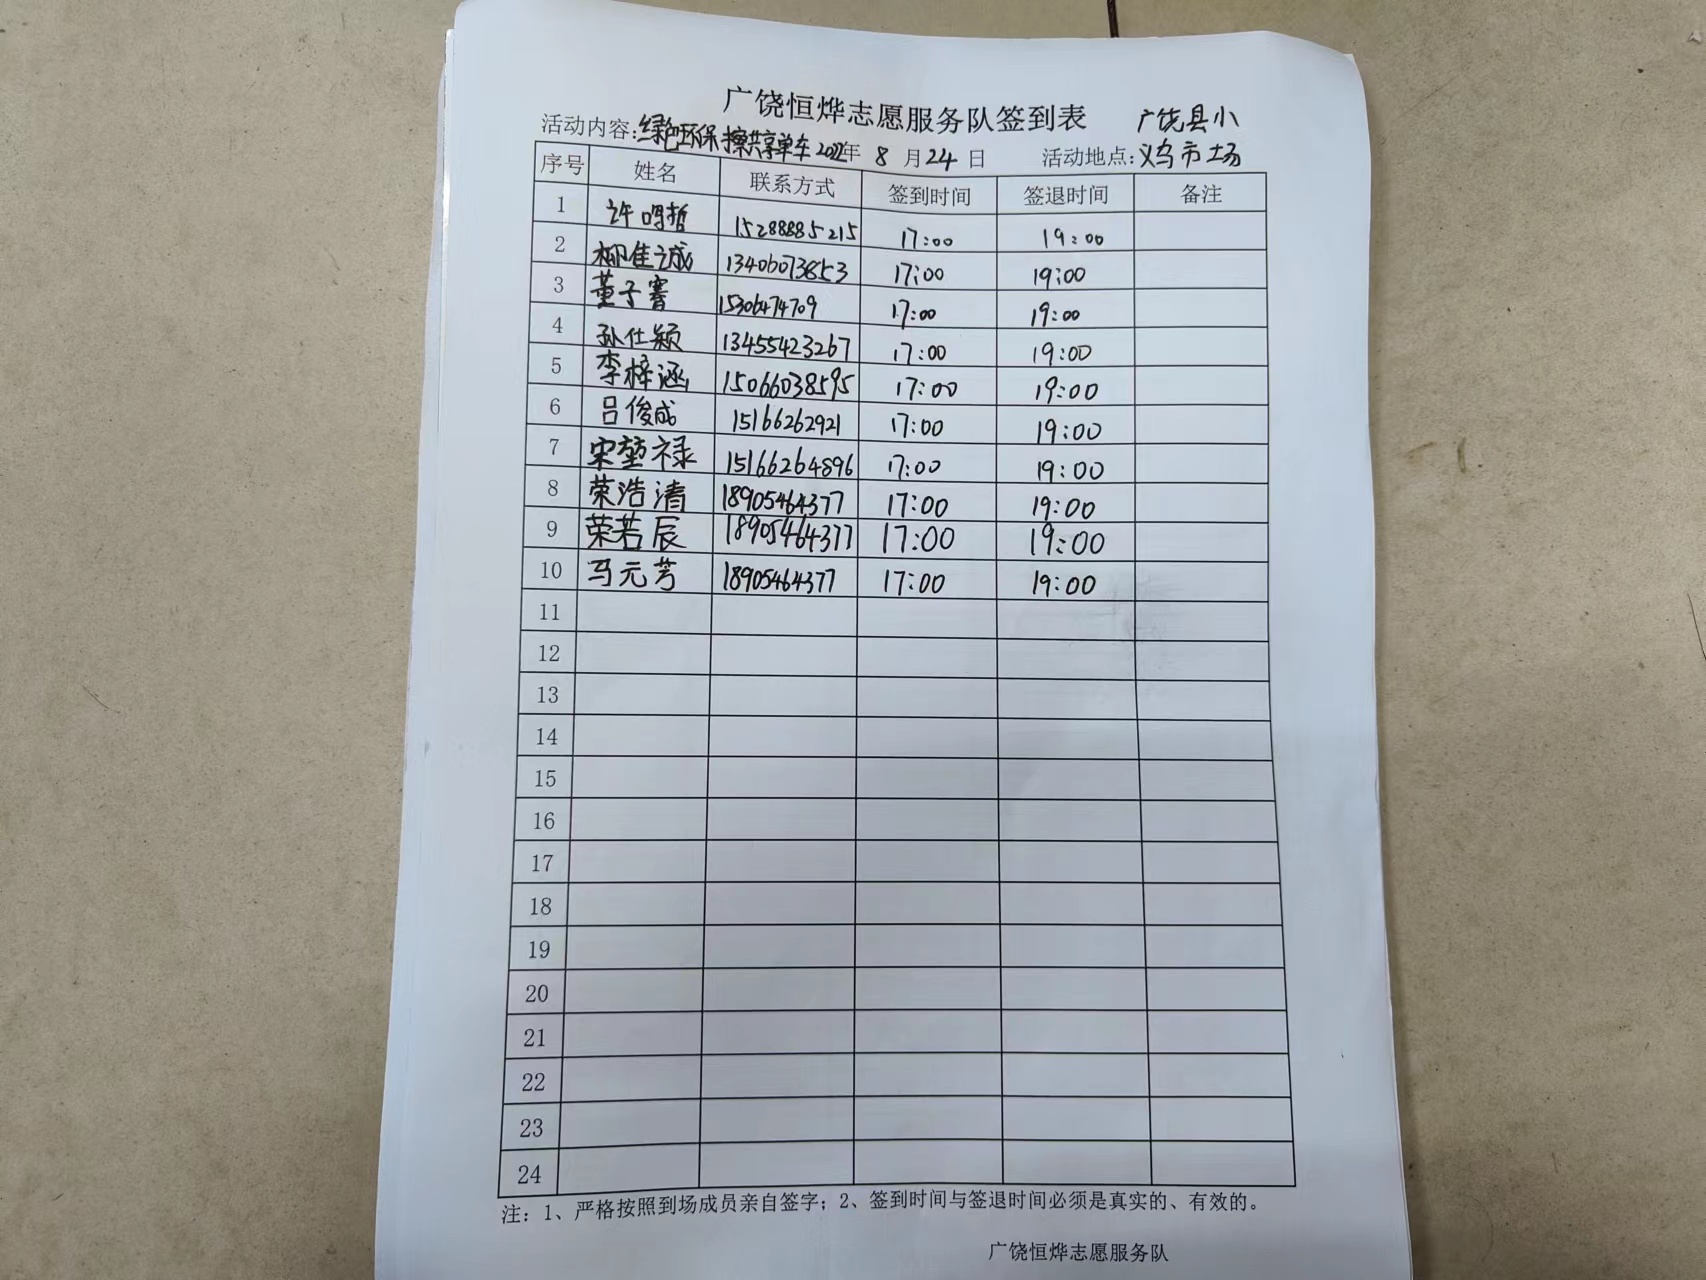 广饶恒烨志愿服务队签到表 广饶县小
活动内容:绿色环保擦共享单车2022年 8 月 24 日 活动地点:义乌市场
序号 姓名 联系方式 签到时间 签退时间 备注
1 许明哲 15288885215 17:00 19:00
2 柳佳诚 13406073853 17:00 19:00
3 董子骞 15306474709 17:00 19:00
4 孙仕颖 13455423267 17:00 19:00
5 李梓涵 15066038595 17:00 19:00
6 吕俊成 15166262921 17:00 19:00
7 宋堃禄 15166264896 17:00 19:00
8 荣浩清 18905464377 17:00 19:00
9 荣若辰 18905464377 17:00 19:00
10 马元芳 18905464377 17:00 19:00
11
12
13
14
15
16
17
18
19
20
21
22
23
24
注：1、严格按照到场成员亲自签字；2、签到时间与签退时间必须是真实的、有效的。
广饶恒烨志愿服务队